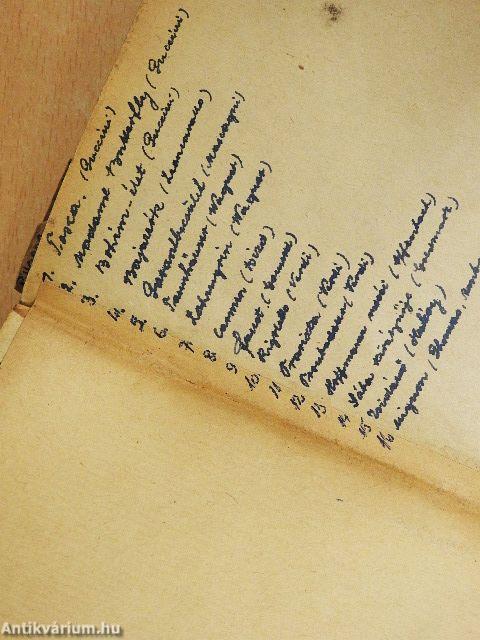 1. Tosca. (Puccini)
2. Madame Butterfly (Puccini)
3. Bohém-élet (Puccini)
4. Bajazzók (Leoncavallo)
5. Parasztbecsület (Mascagni)
6. Tannhäuser (Wagner)
7. Lohengrin (Wagner)
8. Carmen (Bizet)
9. Faust (Gounod)
10. Rigoletto (Verdi)
11. Traviata (Verdi)
12. Troubadour (Verdi)
13. Hoffmann meséi (Offenbach)
14. Sába királynője (Goldmark)
15. Zsidónő (Halévy)
16. Mignon (Thomas,
Antikvárium.hu